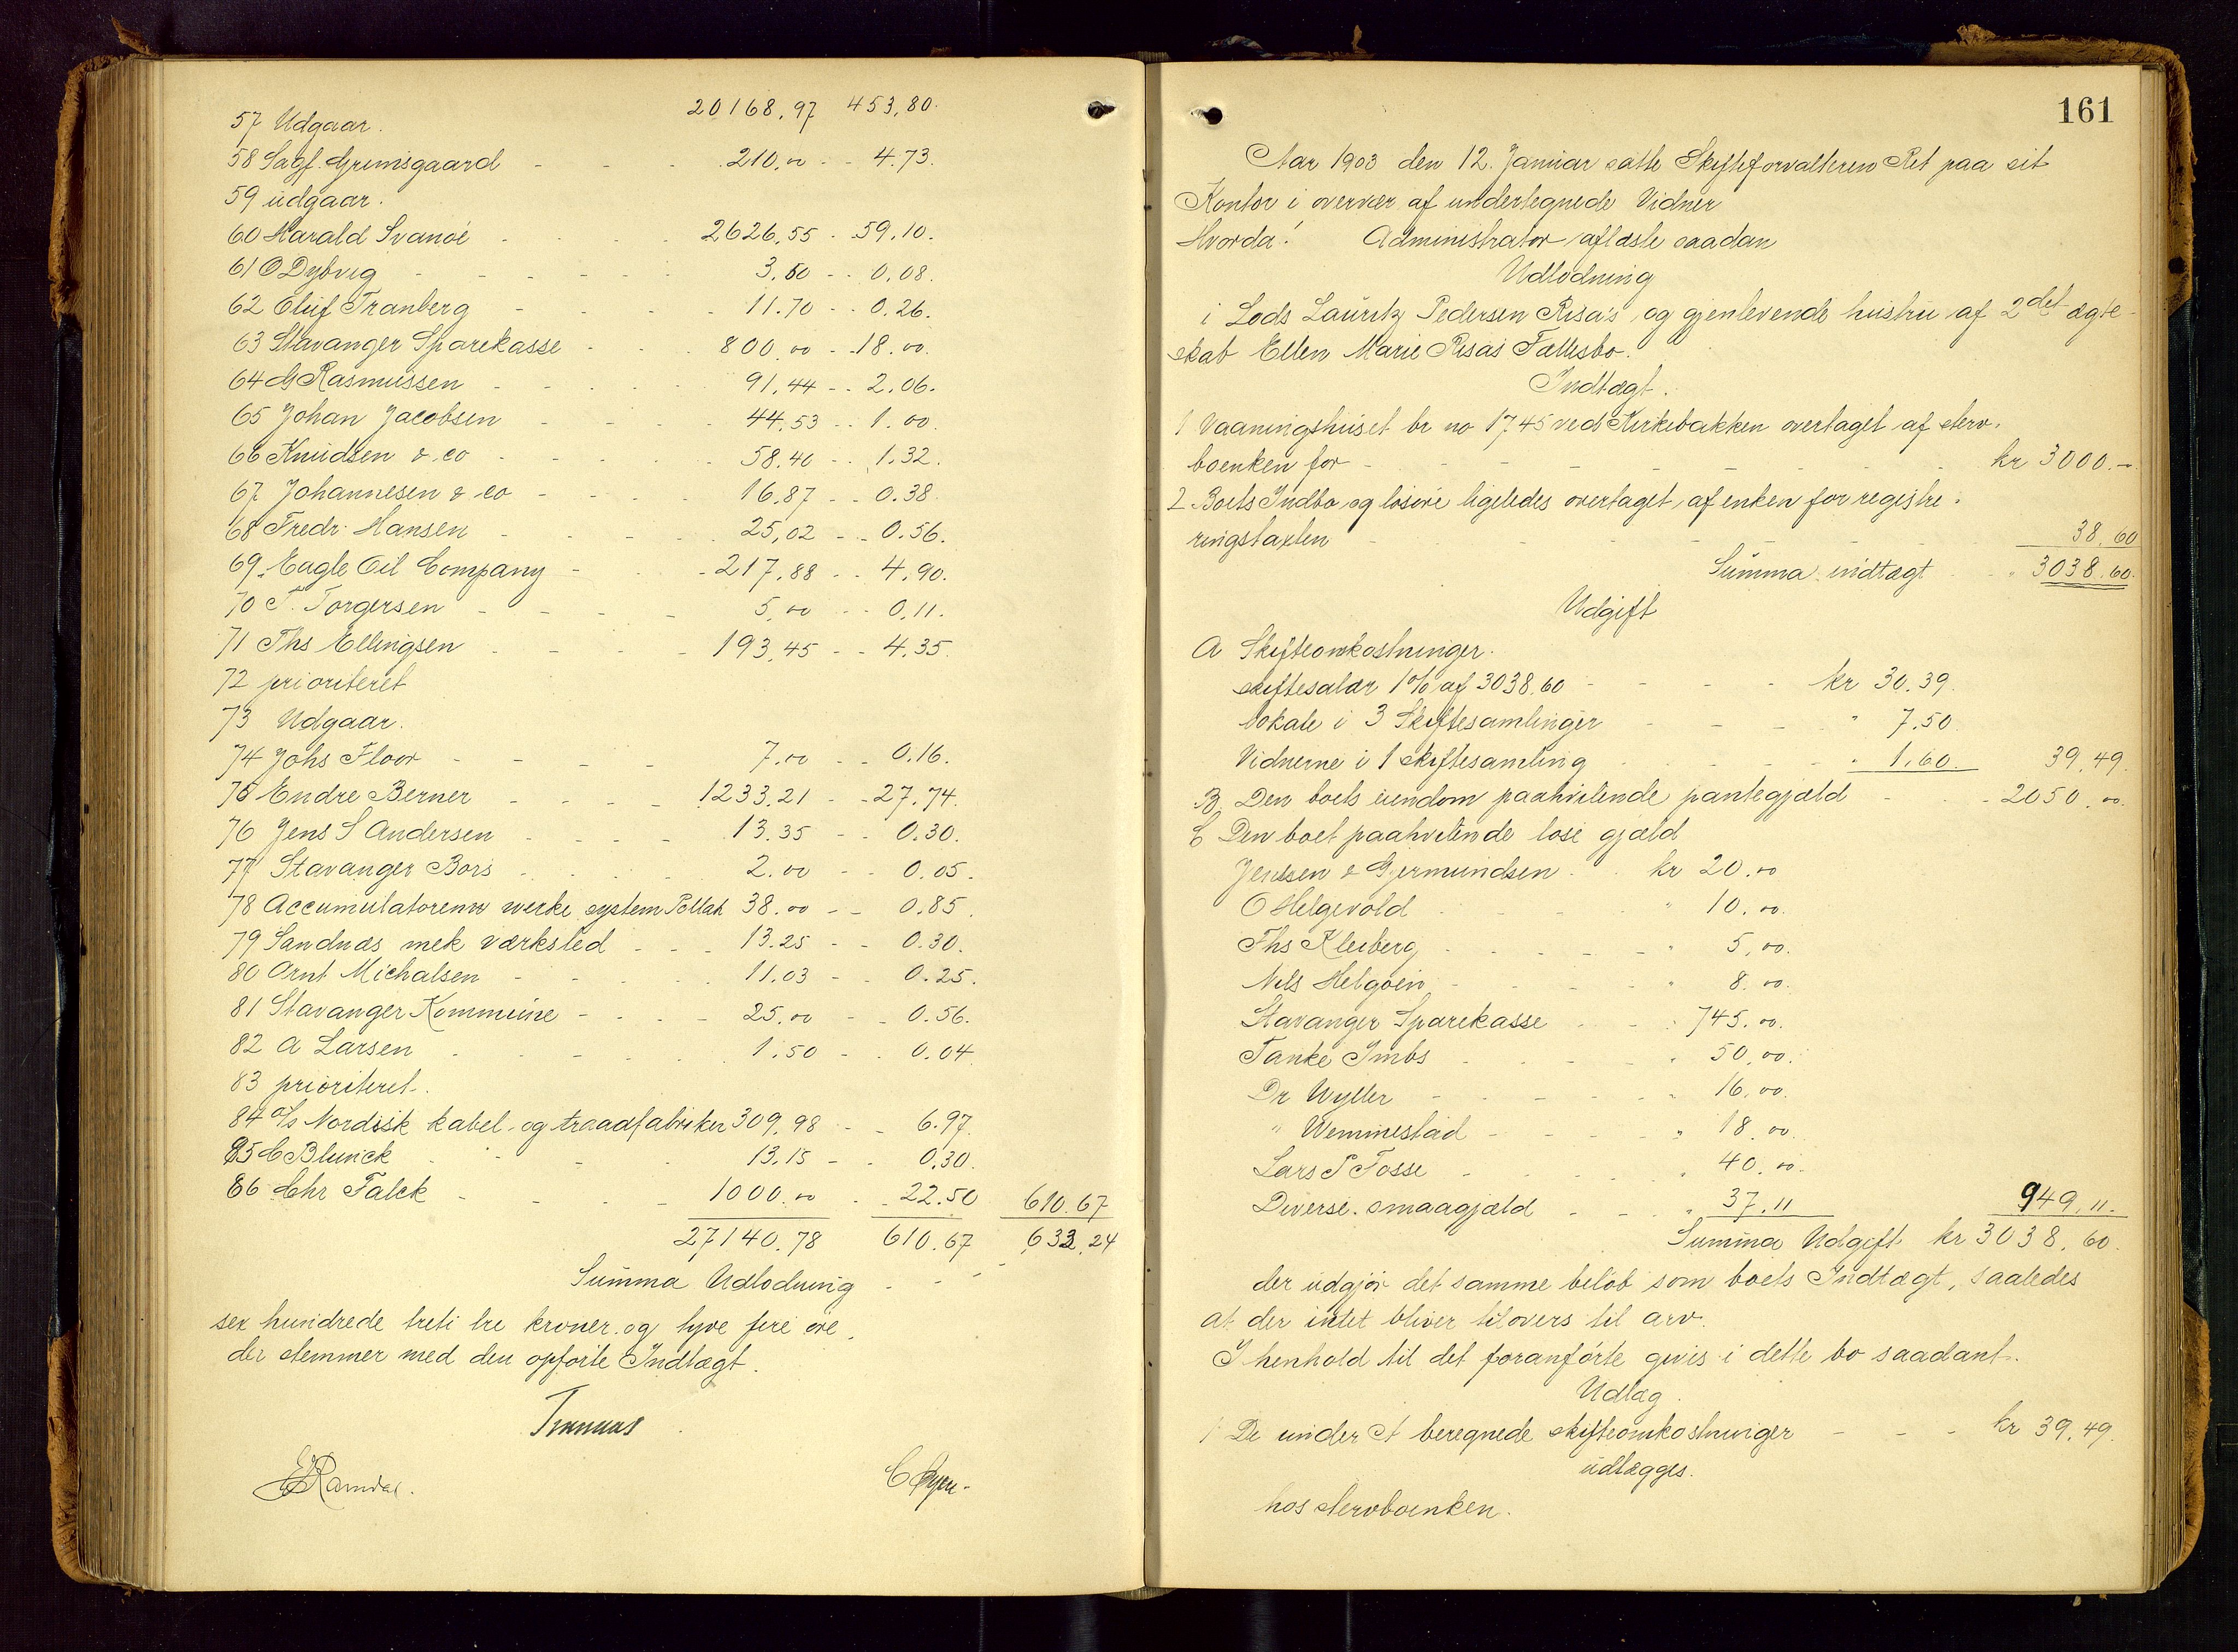 20168.97 453.80.
57 Udgaar.
58 Sagf. Grimsgaard - - - 210.00 - - 4.73.
59 udgaar.
60 Harald Svanøe - - - - 2626.55 - 59.10.
61 O Dybvig - - - - - 3.60 - - 0.08.
62 Eluf Tranberg - - - - 11.70 - - 0.26.
63 Stavanger Sparekasse - - - 800.00 - 18.00.
64 G Rasmussen - - - - 91.44 - - 2.06.
65 Johan Jacobsen - - - - 44.53 - - 1.00.
66 Knudsen & co - - - - 58.40 - - 1.32.
67 Johannesen & co - - - - 16.87 - - 0.38.
68 Fredr. Hansen - - - - 25.02 - - 0.56.
69 Eagle Oil Company - - - 217.88 - - 4.90.
70 T. Torgersen - - - - 5.00 - - 0.11.
71 Ths Ellingsen - - - - 193.45 - - 4.35.
72 prioriteret
73 Udgaar.
74 Johs Floor - - - - 7.00 - - 0.16.
75 Endre Berner - - - - 1233.21 - - 27.74.
76 Jens S Andersen - - - 13.35 - - 0.30.
77 Stavanger Børs - - - - 2.00 - - 0.05.
78 Accumulatorenw werke system Pollak 38.00 - - 0.85.
79 Sandnæs mek værksted - - - 13.25 - - 0.30.
80 Arnt Michalsen - - - 11.03 - - 0.25.
81 Stavanger Kommune - - - - 25.00 - - 0.56.
82 A Larsen - - - - 1.50 - - 0.04
83 prioriteret.
84 A/s Nordisk kabel- og traadfabriker 309.98 - - 6.97.
85 C Blunck - - - 13.15 - - 0.30.
86 Chr Falck - - - - 1000.00 - 22.50 610.67
27140.78 610.67 633.24
Summa Udlodning - - -
sex hundrede treti tre kroner og tyve fire øre,
der stemmer med den opførte Indtægt.
161
Aar 1903 den 12. Januar satte Skifteforvalteren Ret paa sit
Kontor i overvær af undertegnede Vidner
Hvorda! Administrator aflæste saadan
Udlodning
i Lods Lauritz Pedersen Risa's og gjenlevende hustru af 2det ægte-
skab Ellen Marie Risas Fællesbo.
Indtægt.
1 Vaaningshuset br no 1745 ved Kirkebakken overtaget af sterv-
boenken for - - - - - - - kr 3000.-
2. Boets Indbo og løsøre ligeledes overtaget af enken for registre-
ringstaxten - - - - - - - 38.60
Summa indtægt - " 3038.60.
Udgift
A Skifteomkostninger.
skiftesalær 1% af 3038.60 - - - - kr 30.39.
lokale i 3 Skiftesamlinger - - - " 7.50
Vidnerne i 1 skiftesamling - - - " 1.60. 39.49.
B. Den boets eiendom paahvilende pantegjæld - - - 2050.00.
C Den boet paahvilende løse gjæld
Jensen & Gjermundsen - - kr 20.00
O Helgevold - - - - " 10.00.
Ths Kleiberg - - - - " 5.00.
Nils Helgøin - - - - " 8.00.
Stavanger Sparekasse - - " 745.00.
Tanke Imbs - - - - " 50.00.
Dr Wyller - - - - - " 16.00.
" Wennestad - - - - " 18.00.
Lars P Fosse - - - - " 40.00.
Diverse smaagjæld - - - " 37.11 949.11.
Summa Udgift kr 3038.60.
der udgjør det samme beløb som boets Indtægt, saaledes
at der intet bliver tilovers til arv.
I henhold til det foranførte gives i dette bo saadant.
Udlæg.
1 De under A beregnede skifteomkostninger - - - kr 39.49.
udlægges.
hos stervboenken.